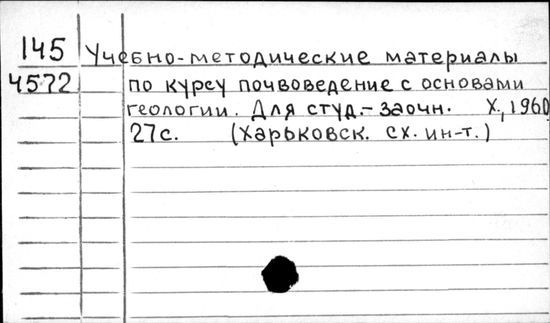 145 Учебно-методические материалы
4572 по курсу почвоведение с основами
геологии. Для студ.-заочн. Х., 1960
27с. (Харьковск. сх. ин-т.)